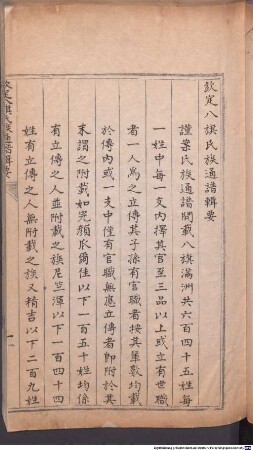 欽定八旗氏族通譜輯要
謹案氏族通譜開載八旗滿洲共六百四十五姓每
一姓中每一支內擇其官至三品以上或立有世職
者一人為之立傳其子孫有官職者按其軰數均載
於傳內或一支中僅有官職無應立傳者即附於其
末謂之附載如完顏瓜爾佳以下一百五十姓均係
有立傳之人並附載之族尼竺渾以下一百四十四
姓有立傳之人無附載之族又精吉以下二百九姓
欽定八旗氏族通譜輯要
一